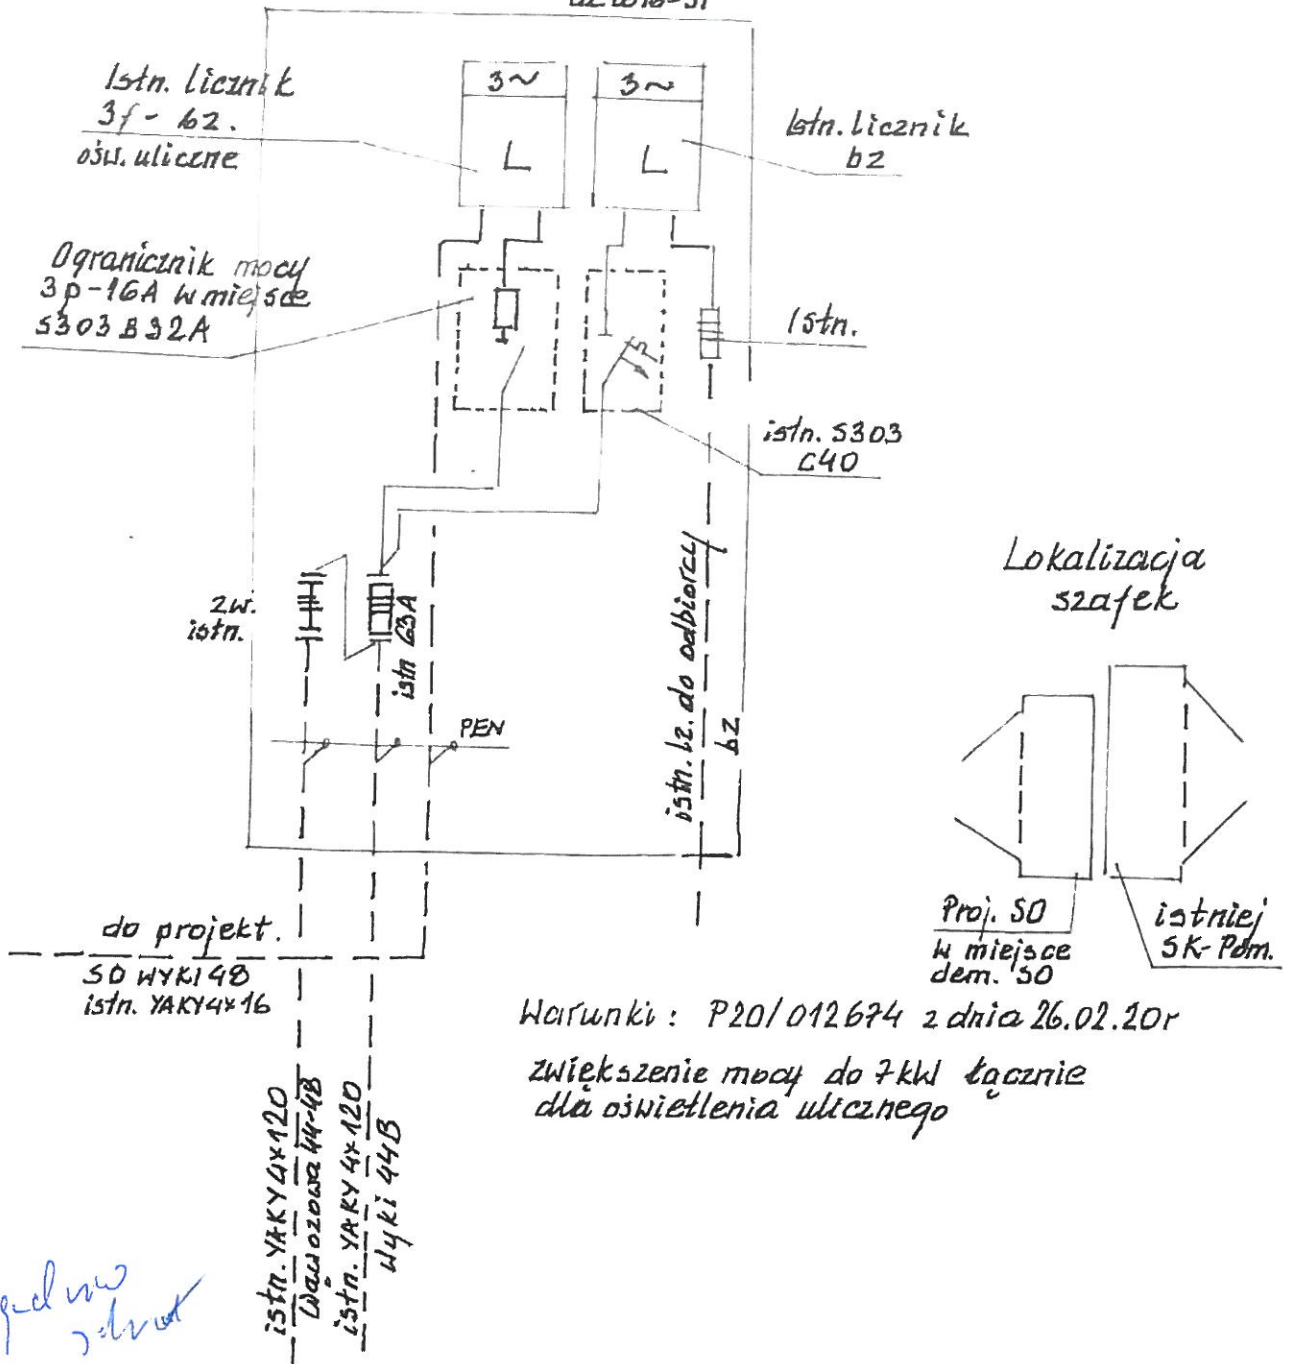 3~
3~
L
L
Istn. licznik
3f - bz.
ośw. uliczne
Istn. licznik
bz
Ogranicznik mocy
3p-16A w miejsce
S303 B32A
Istn.
istn. S303
C40
zw.
istn.
istn 63A
PEN
istn. lz. do odbiorcy
bz
Lokalizacja
szafek
Proj. SO
w miejsce
dem. SO
istniej
SK-Pom.
do projekt.
SO WYKI 48
istn. YAKY 4x16
Warunki : P20/012674 z dnia 26.02.20r
zwiększenie mocy do 7kW łącznie
dla oświetlenia ulicznego
istn. YAKY 4x120
Wąwozowa 44-48
istn. YAKY 4x120
Wyki 44B